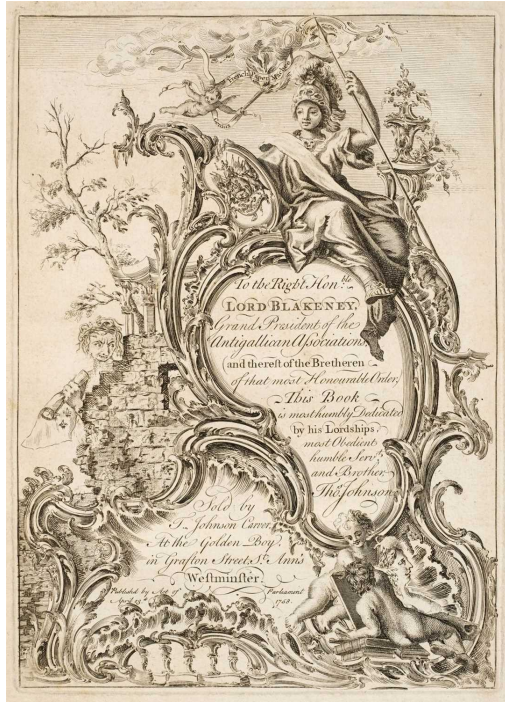 French Paper Mac
To the Right Hon.ble
LORD BLAKENEY.
Grand President of the
Antigallican Aſsociations
and the reſt of the Bretheren
of that most Honourable Order,
This Book
is most humbly Dedicated
by his Lordships
most Obedient
humble Serv.t
and Brother,
Tho.s Johnson
Sold by
T. Johnson Carver,
At the Golden Boy,
in Grafton Street, S.t Ann's
Weſtminſter.
Publish'd by Act of Parliament
April